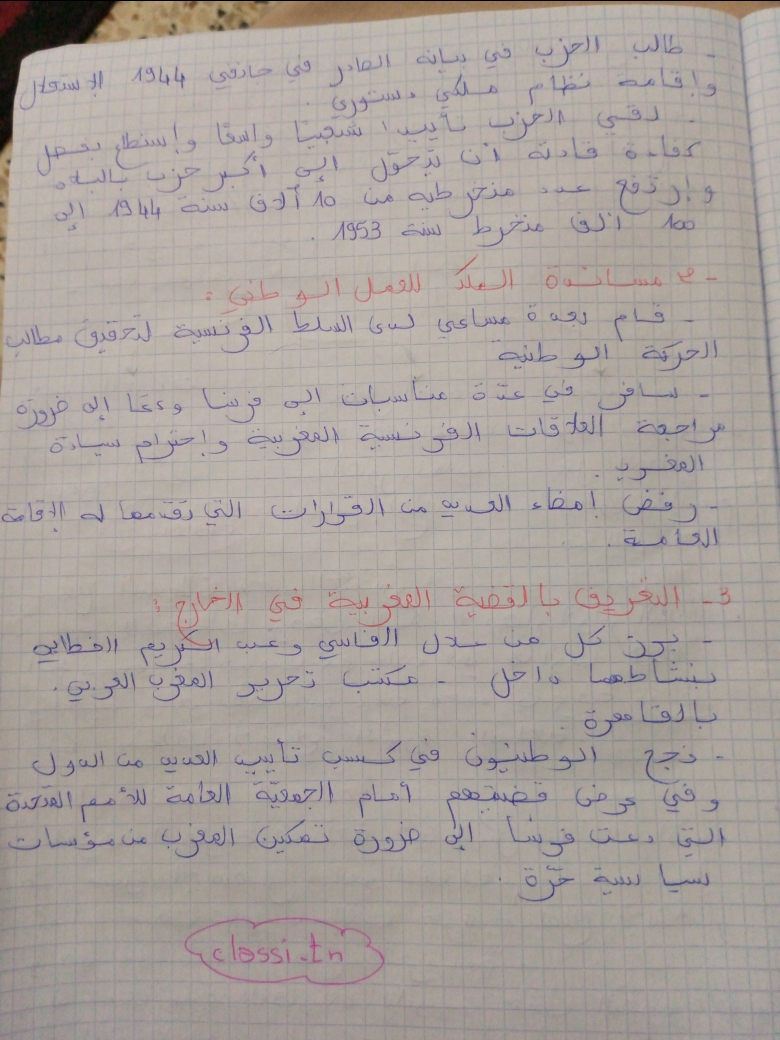 - طالب الحزب في بيانه الصادر في جانفي 1944 الإستقلال
وإقامة نظام ملكي دستوري .
- لقي الحزب تأييدا شعبيّا واسعًا وإستطاع بفضل
كفاءة قادته أن يتحوّل إلى أكبر حزب بالبلاد
وإرتفع عدد منخرطيه من 10 آلاف سنة 1944 إلى
100 ألف منخرط سنة 1953 .
2- مساندة الملك للعمل الوطني :
- قام بعدة مساعي لدى السلط الفرنسية لتحقيق مطالب
الحركة الوطنية
- سافر في عدّة مناسبات إلى فرنسا ودعا إلى ضرورة
مراجعة العلاقات الفرنسية المغربية وإحترام سيادة
المغرب .
- رفض إمضاء العديد من القرارات التي تقدمها له الإقامة
العامة .
3- التعريف بالقضية المغربية في الخارج :
- برز كل من علال الفاسي وعبد الكريم الخطابي
بنشاطهما داخل - مكتب تحرير المغرب العربي .
بالقاهرة .
- نجح الوطنيون في كسب تأييد العديد من الدول
وفي عرض قضيتهم أمام الجمعيّة العامة للأمم المتحدة
التي دعت فرنسا إلى ضرورة تمكين المغرب من مؤسسات
سياسية حرّة .
classi.tn